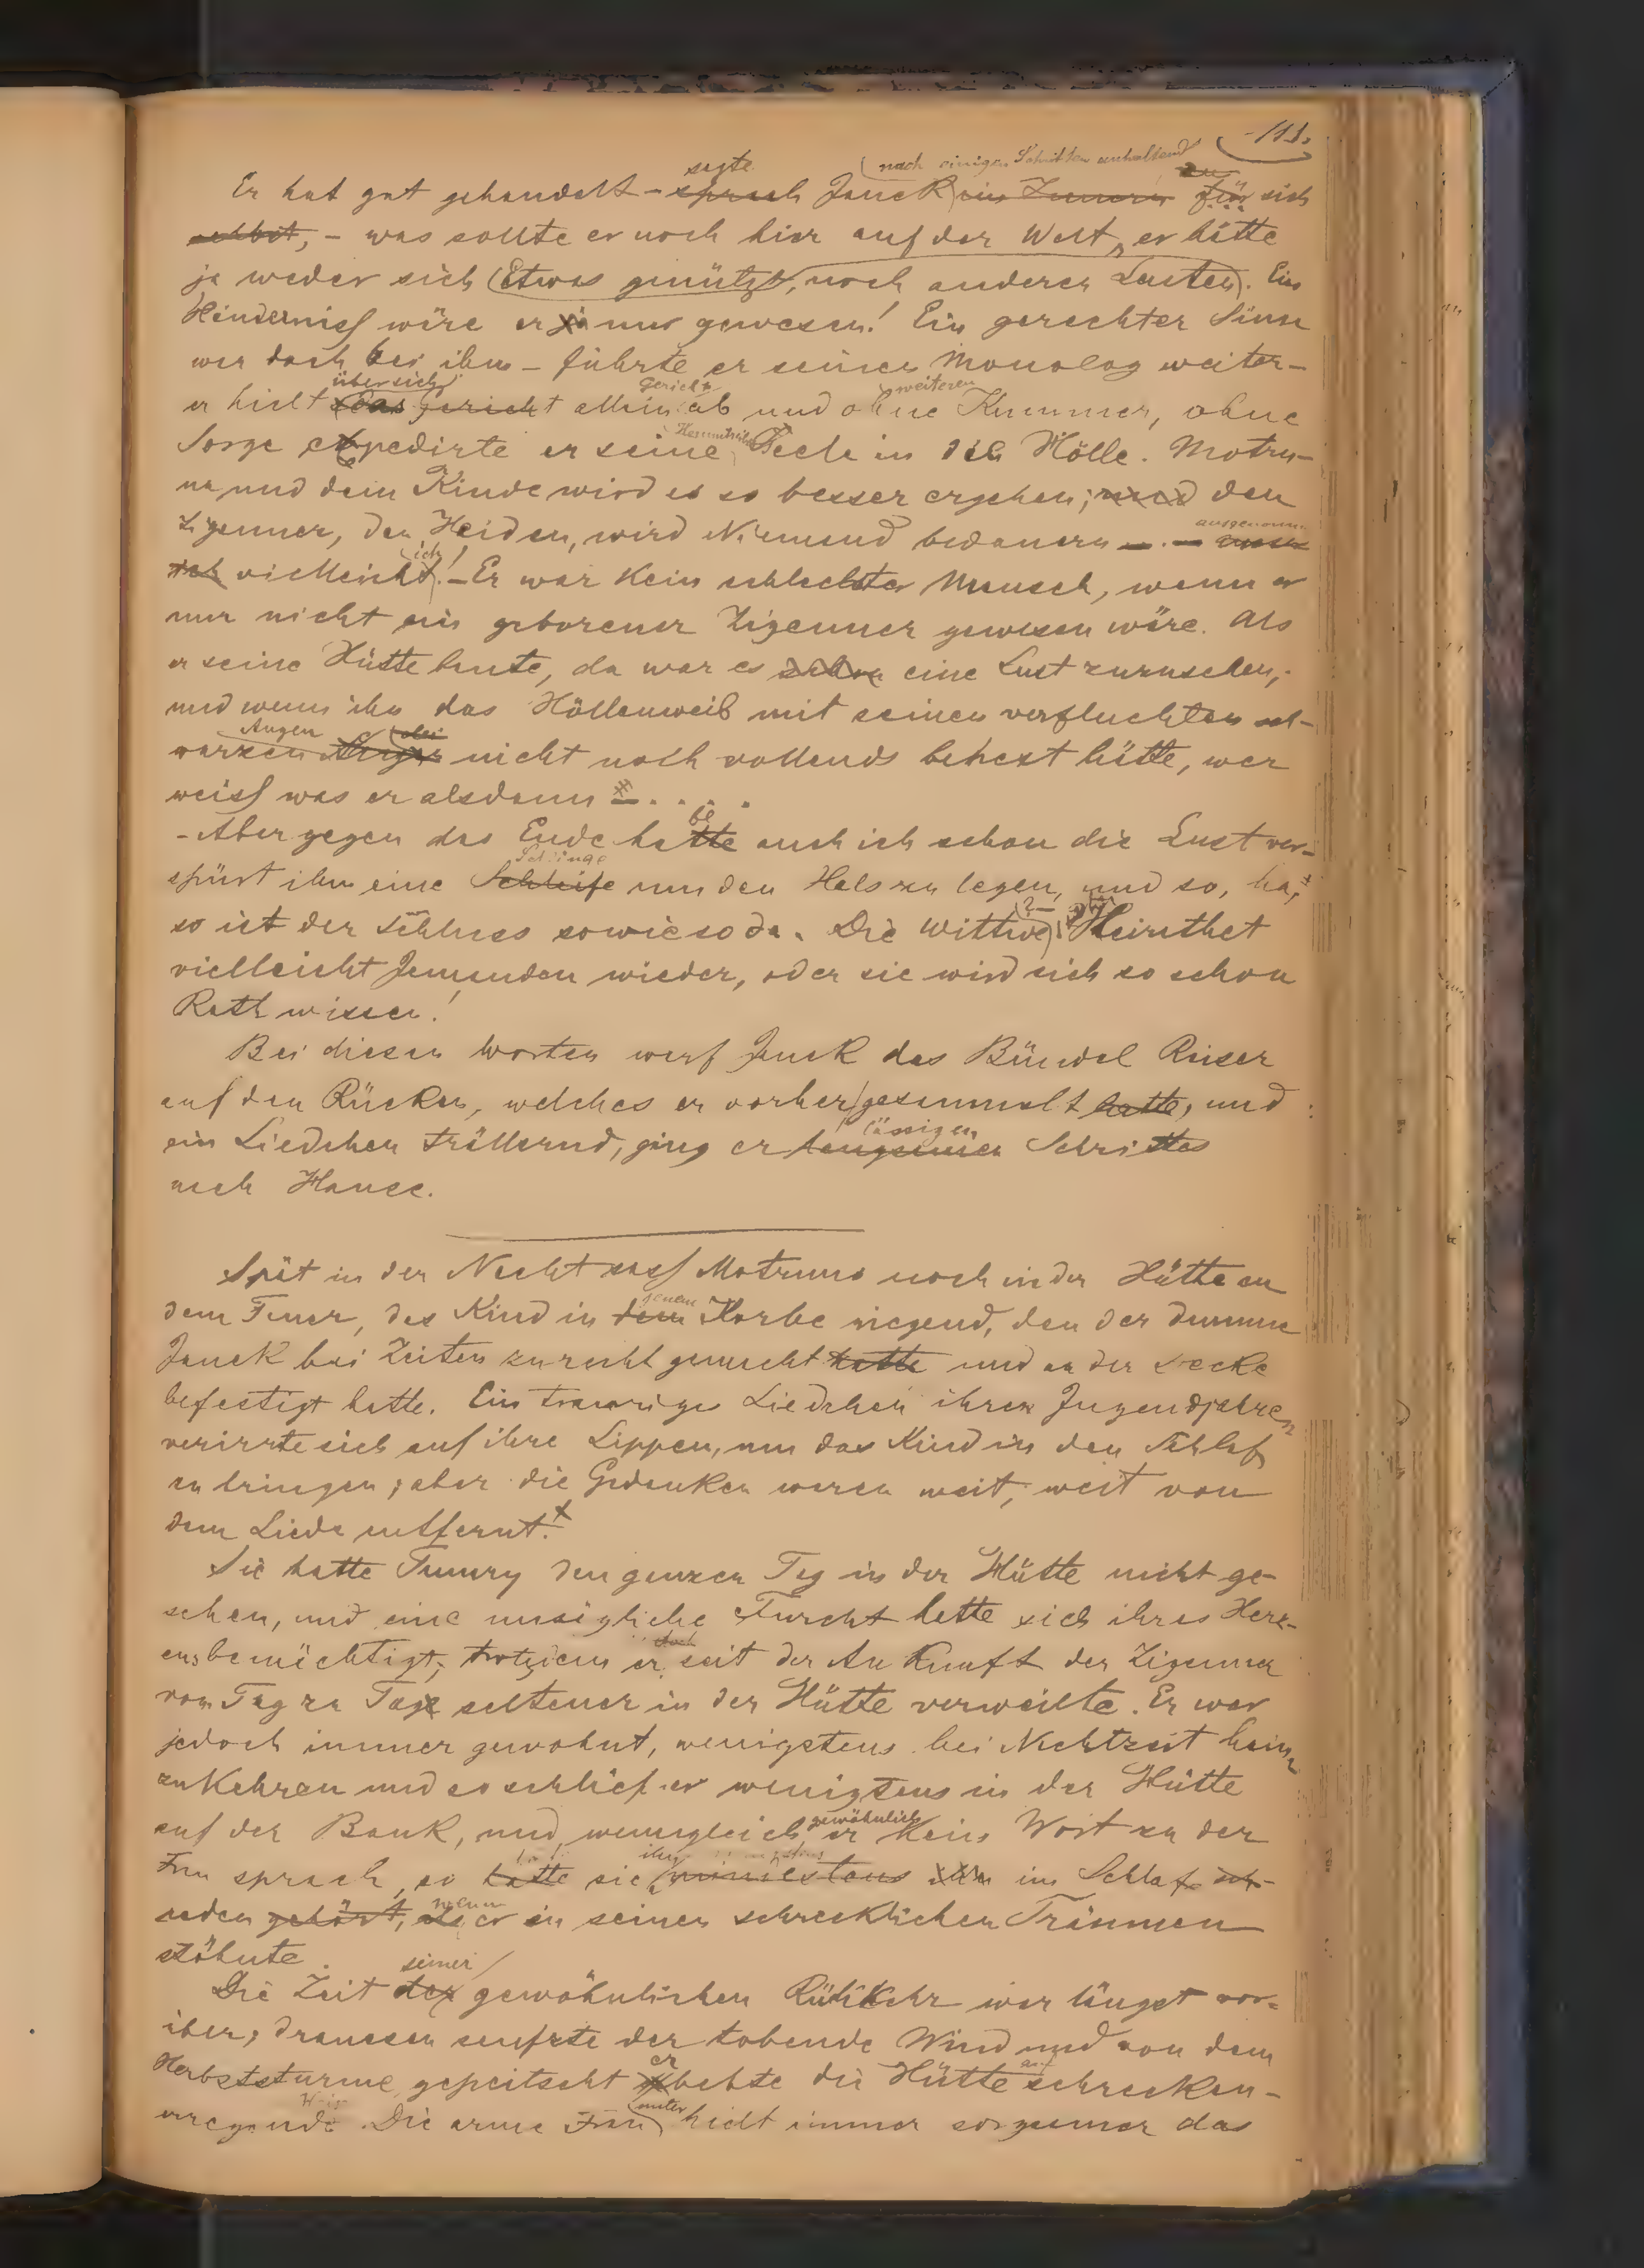 -111.
sagte (nach einigen Schritten anhaltend) zu
Er hat gut gehandelt - sprach Janek im Innern für sich
selbst, - was sollte er noch hier auf der Welt, er hätte
ja weder sich (Etwas genützt, noch anderen Leuten). Ein
Hinderniss wäre er ja nur gewesen! Ein gerechter Sinn
war doch bei ihm - führte er seinen Monolog weiter -
über sich Gericht weiteren
er hielt das Gericht allein ab und ohne Kummer, ohne
Sorge expedirte er seine Seele in die Hölle. Motru-
na und dem Kinde wird es so besser ergehen; und den
ausgenommen
Zigeuner, den Heiden, wird Niemand bedauern - . - ausser
ich
vielleicht! - Er war kein schlechter Mensch, wenn er
nur nicht ein geborener Zigeuner gewesen wäre. Als
er seine Hütte baute, da war es schon eine Lust zuzusehen,
und wenn ihn das Höllenweib mit seinen verfluchten sch-
Augen
warzen Augen nicht noch vollends behext hätte, wer
weiss was er alsdann . . . .
be
- Aber gegen das Ende hatte auch ich schon die Lust ver-
Schlinge
spürt ihm eine Schleife um den Hals zu legen, und so, ha,
so ist der Schluss sowieso da. Die Wittwe? - Heirathet
vielleicht Jemanden wieder, oder sie wird sich so schon
Rath wissen!
Bei diesen Worten warf Janek das Bündel Reiser
auf den Rücken, welches er vorher gesammelt hatte, und
lässigen
ein Liedchen trällernd, ging er langsamen Schrittes
nach Hause.
Spät in der Nacht sass Motruna noch in der Hütte an
jenem
dem Feuer, das Kind in dem Korbe wiegend, den der dumme
Janek bei Zeiten zurecht gemacht hatte und an der Decke
befestigt hatte. Ein trauriges Liedchen ihrer Jugendjahre
verirrte sich auf ihre Lippen, um das Kind in den Schlaf
zu bringen; aber die Gedanken waren weit, weit von
dem Liede entfernt.
Sie hatte Tumry den ganzen Tag in der Hütte nicht ge-
sehen, und eine unsägliche Furcht hatte sich ihres Herz-
doch
ens bemächtigt, trotzdem er seit der Ankunft der Zigeuner
von Tag zu Tage seltener in der Hütte verweilte. Er war
jedoch immer gewohnt, wenigstens bei Nachtzeit heim
zu kehren und so schlief er wenigstens in der Hütte
gewöhnlich
auf der Bank, und, wenngleich er kein Wort zu der
ihn
Frau sprach, so hatte sie mindestens ihn im Schlaf
wenn
reden gehört, er in seinen schrecklichen Träumen
stöhnte.
seiner
Die Zeit der gewöhnlichen Rückkehr war längst vor-
über; draussen seufzte der tobende Wind und von dem
er
Herbststurme gepeitscht bebte die Hütte schrecken-
erregend. Die arme Frau hielt immer sorgsamer das